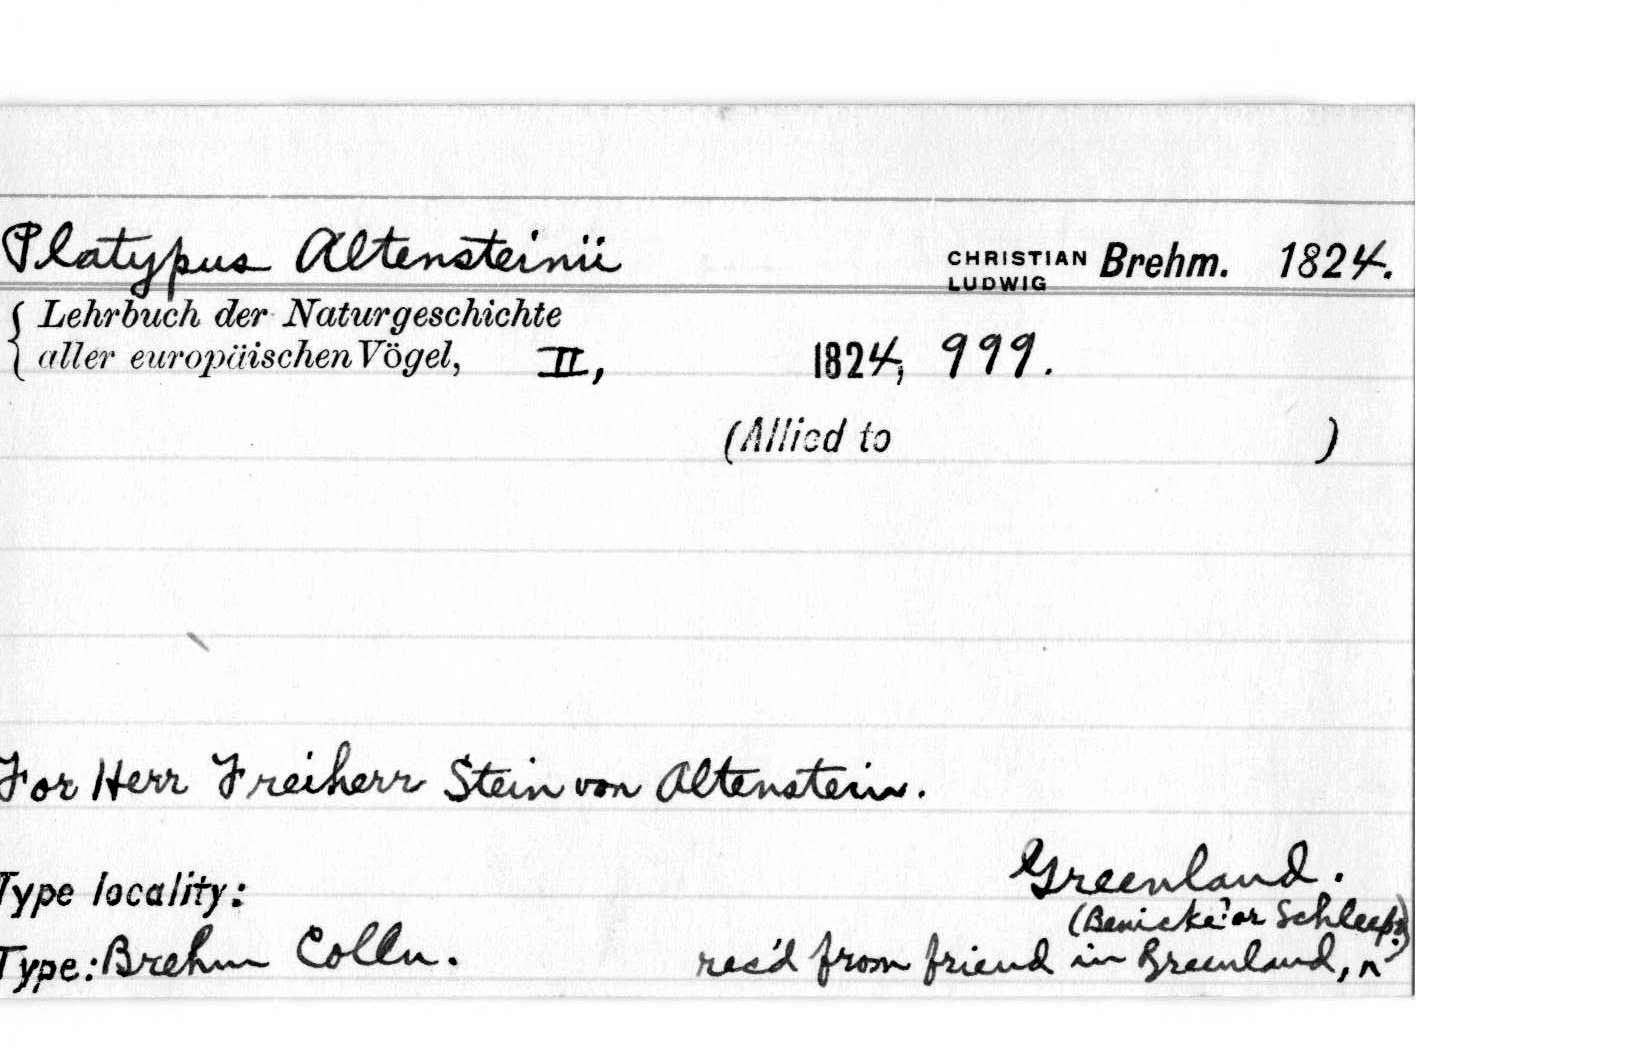 Platypus Altensteinii CHRISTIAN LUDWIG Brehm. 1824.
{ Lehrbuch der Naturgeschichte
aller europäischen Vögel, II, 1824, 999.
(Allied to )
For Herr Freiherr Stein von Altenstein.
Greenland.
Type locality:
(Benicke? or Schleep?)
Type: Brehm Colln. rec'd from friend in Greenland,